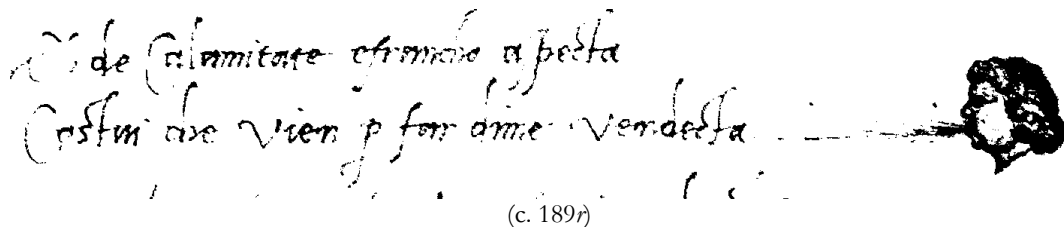 de Calamitate e francho aspecta
Costui che vien p far dime vendecta
(c. 189r)